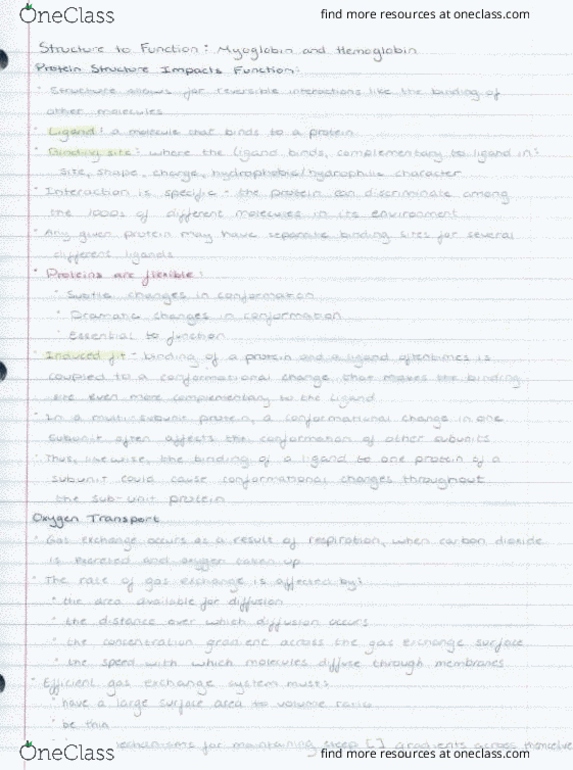 OneClass
find more resources at oneclass.com
Structure to Function: Myoglobin and Hemoglobin
Protein Structure Impacts Function:
· Structure allows for reversible interactions like the binding of
other molecules
· Ligand: a molecule that binds to a protein
· Binding site: where the ligand binds, complementary to ligand in:
size, shape, charge, hydrophobic/hydrophilic character
· Interaction is specific - the protein can discriminate among
the 1000s of different molecules in its environment
· Any given protein may have separate binding sites for several
different ligands
· Proteins are flexible:
· Subtle changes in conformation
· Dramatic changes in conformation
· Essential to function
· Induced fit - binding of a protein and a ligand oftentimes is
coupled to a conformational change, that makes the binding
site even more complementary to the ligand
· In a multi-subunit protein, a conformational change in one
subunit often affects the conformation of other subunits
· Thus, likewise, the binding of a ligand to one protein of a
subunit could cause conformational changes throughout
the sub-unit protein
Oxygen Transport
· Gas exchange occurs as a result of respiration, when carbon dioxide
is excreted and oxygen taken up
· The rate of gas exchange is affected by:
· the area available for diffusion
· the distance over which diffusion occurs
· the concentration gradient across the gas exchange surface
· the speed with which molecules diffuse through membranes
· Efficient gas exchange system must:
· have a large surface area to volume ratio
· be thin
mechanisms for maintaining steep [ ] gradients across themselves
OneClass
find more resources at oneclass.com